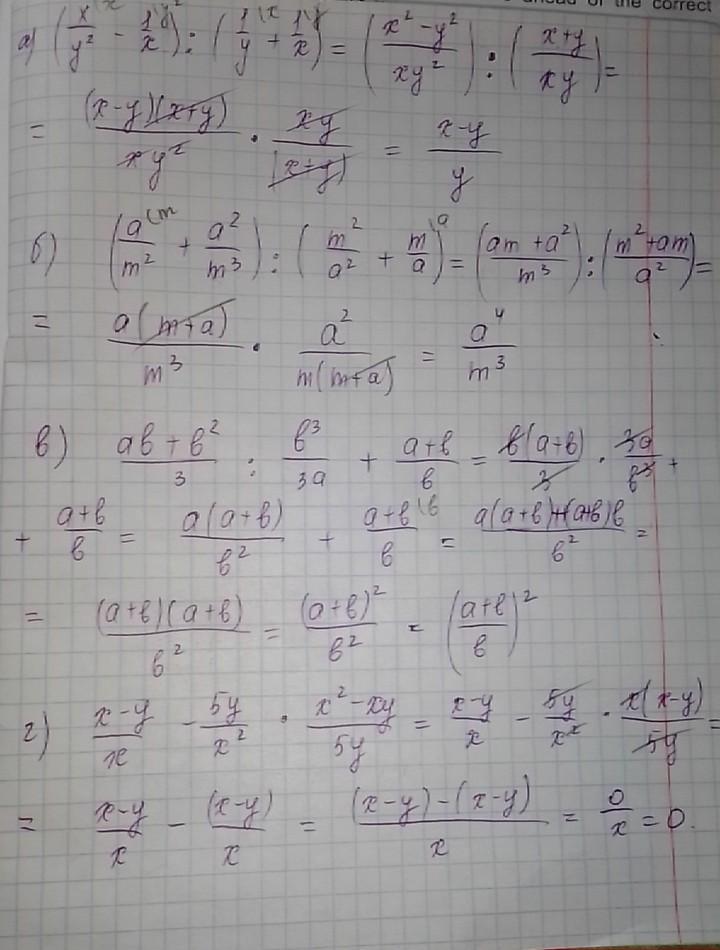 ahead of the correct
а) (x/y² \x - 1/x \y²) : (1/y \x + 1/x \y) = ((x² - y²)/(xy²)) : ((x+y)/(xy)) =
= ((x-y)(x+y))/(xy²) · (xy)/((x+y)) = (x-y)/y
б) (a/m² \m + a²/m³) : (m²/a² + m/a \a) = ((am + a²)/m³) : ((m² + am)/a²) =
= (a(m+a))/m³ · a²/(m(m+a)) = a⁴/m³
в) (aв + в²)/3 : в³/(3a) + (a+в)/в = (в(a+в))/3 · (3a)/в³ +
+ (a+в)/в = (a(a+в))/в² + (a+в)/в \в = (a(a+в)+(a+в)в)/в² =
= ((a+в)(a+в))/в² = (a+в)²/в² = ((a+в)/в)²
г) (x-y)/x - (5y)/x² · (x² - xy)/(5y) = (x-y)/x - (5y)/x² · (x(x-y))/(5y) =
= (x-y)/x - (x-y)/x = ((x-y)-(x-y))/x = 0/x = 0.